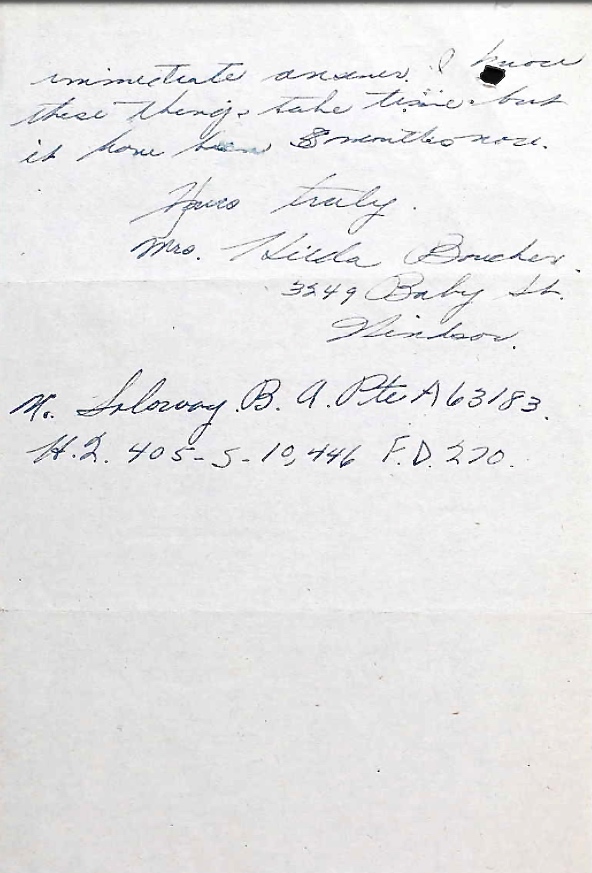 immediate answer. I know
these things take time but
it have been 8 months now.
Yours truly.
Mrs. Hilda Boucher.
3249 Baby St.
Windsor.
Soloway B. A. Pte A 63183.
H.Q. 405-S-10,446 F.D. 270.